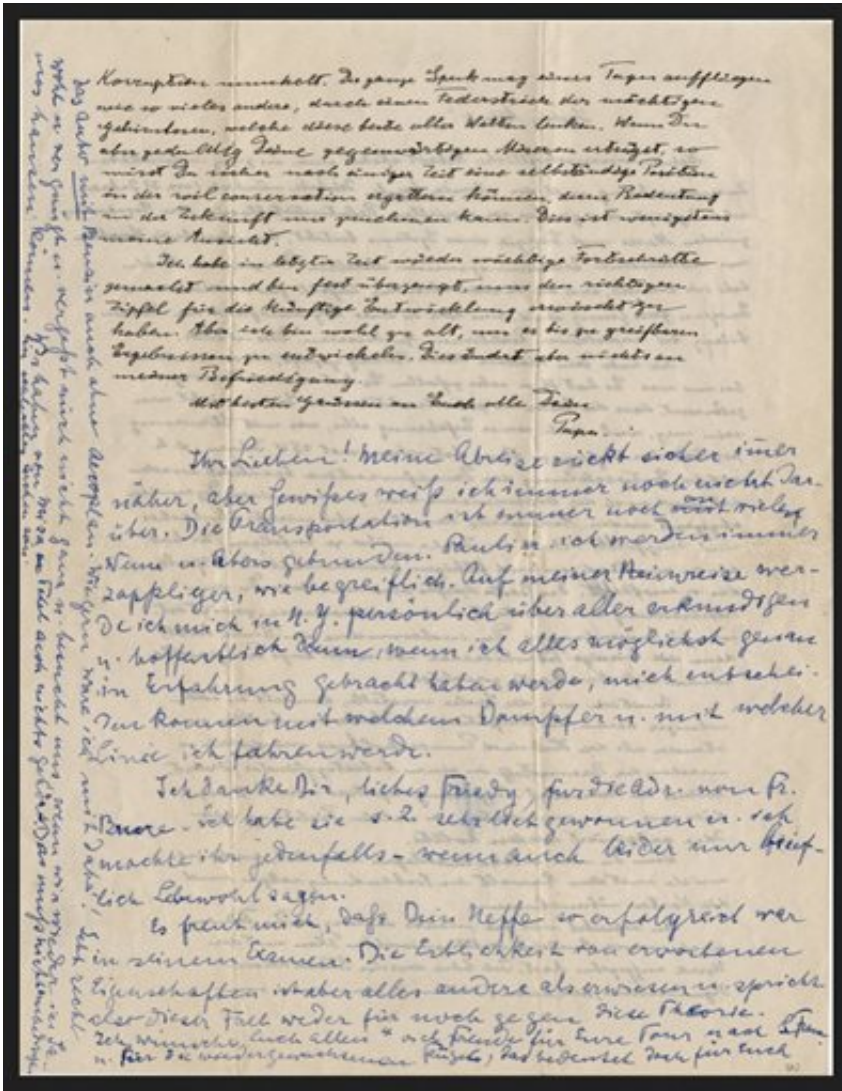 Korruption munkelt. Der ganze Spuk mag eines Tages auffliegen
wie so vieles andere, durch einen Federstrich der mächtigen
Gehirntoren, welche diese beste aller Welten lenken. Wenn Du
aber geduldig Deine gegenwärtigen erträgst, so
wirst Du sicher nach einiger Zeit eine selbständige Position
in der soil conservation ergattern können, deren Bedeutung
in der Zukunft nur zunehmen kann. Dies ist wenigstens
meine Ansicht.
Ich habe in letzter Zeit wieder wichtige Fortschritte
gemacht und bin fest überzeugt, nun den richtigen
Zipfel für die künftige Entwicklung erwischt zu
haben. Aber ich bin wohl zu alt, um es bis zu greifbaren
Ergebnissen zu entwickeln. Dies ändert aber nichts an
meiner Befriedigung.
Mit besten Grüssen an Euch alle Dein
Papa.
Ihr Lieben! Meine Abreise rückt sicher imer
näher, aber Gewißes weiß ich immer noch nicht da-
rüber. Die Transportation ist immer noch an viele
Wenn u. Abers gebunden. Paul u. ich werden immer
zappliger, wie begreiflich. Auf meiner Heimreise wer-
de ich mich in N.Y. persönlich über alles erkundigen
u. hoffentlich dann, wenn ich alles möglichst genau
in Erfahrung gebracht haben werde, mich entschei-
den können mit welchem Dampfer u. mit welcher
Linie ich fahren werde.
Ich danke Dir, liebes Friedy für die Adr. von Fr.
ich habe sie s. Z. sehr lieb gewonnen u. ich
möchte ihr jedenfalls - wenn auch leider nur brief-
lich Lebewohl sagen.
Es freut mich, daß Dein Neffe so erfolgreich war
in seinem Examen. Die Erblichkeit von erworbenen
Eigenschaften ist aber alles andere als erwiesen u. spricht
also dieser Fall weder für noch gegen diese Theorie.
Ich wünsche Euch allen viel Freude für Eure Tour nach
u. für die wiedergewonnenen Kugeln, das bedeutet doch für Euch
das Auto mit Benzin auch ohne Aeroplan. Wie gern wäre ich mit dabei! Lebt recht
wohl u. vergnügt u. vergeßt mich nicht ganz u. besucht uns wenn wir wieder in
hausen können.